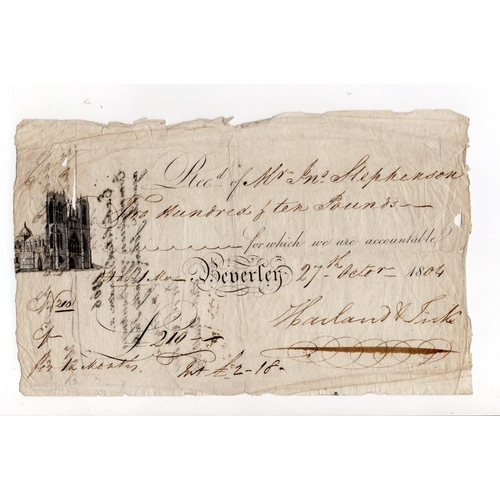 Recd of Mr Jno Stephenson
Two Hundred & ten Pounds
for which we are accountable
Beverley 27th Octor 1804
£210
Harland & Tuke
£210
for 12 Months. Int £2-18-